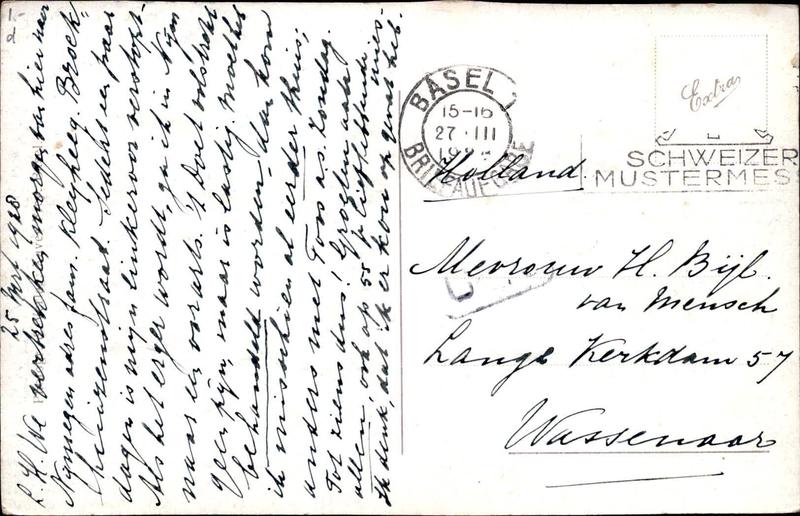 25 Mrt 1928
L. H. We vertrekken morgen van hier naar
Nijmegen adres fam. Kleyheeg. Broek-
huizenstraat. Sedert een paar
dagen is mijn linkeroor verstopt.
Als het erger wordt, ga ik in Nijm.
naar een oorarts. 't Doet volstrekt
geen pijn, maar is lastig. Mocht het
behandeld worden, dan kom
ik misschien al eerder thuis,
anders met Toos a.s. Zondag.
Tot ziens dus! Groeten aan
allen, ook op 55 liefhebbende
Ik denk, dat ik er kou op gevat heb.
BASEL 1
15-16
27. III
BRIEFAUFGABE
Extra
SCHWEIZER
MUSTERMES
Holland.
Mevrouw H. Bijl.
van Mensch
Lange Kerkdam 57
Wassenaar